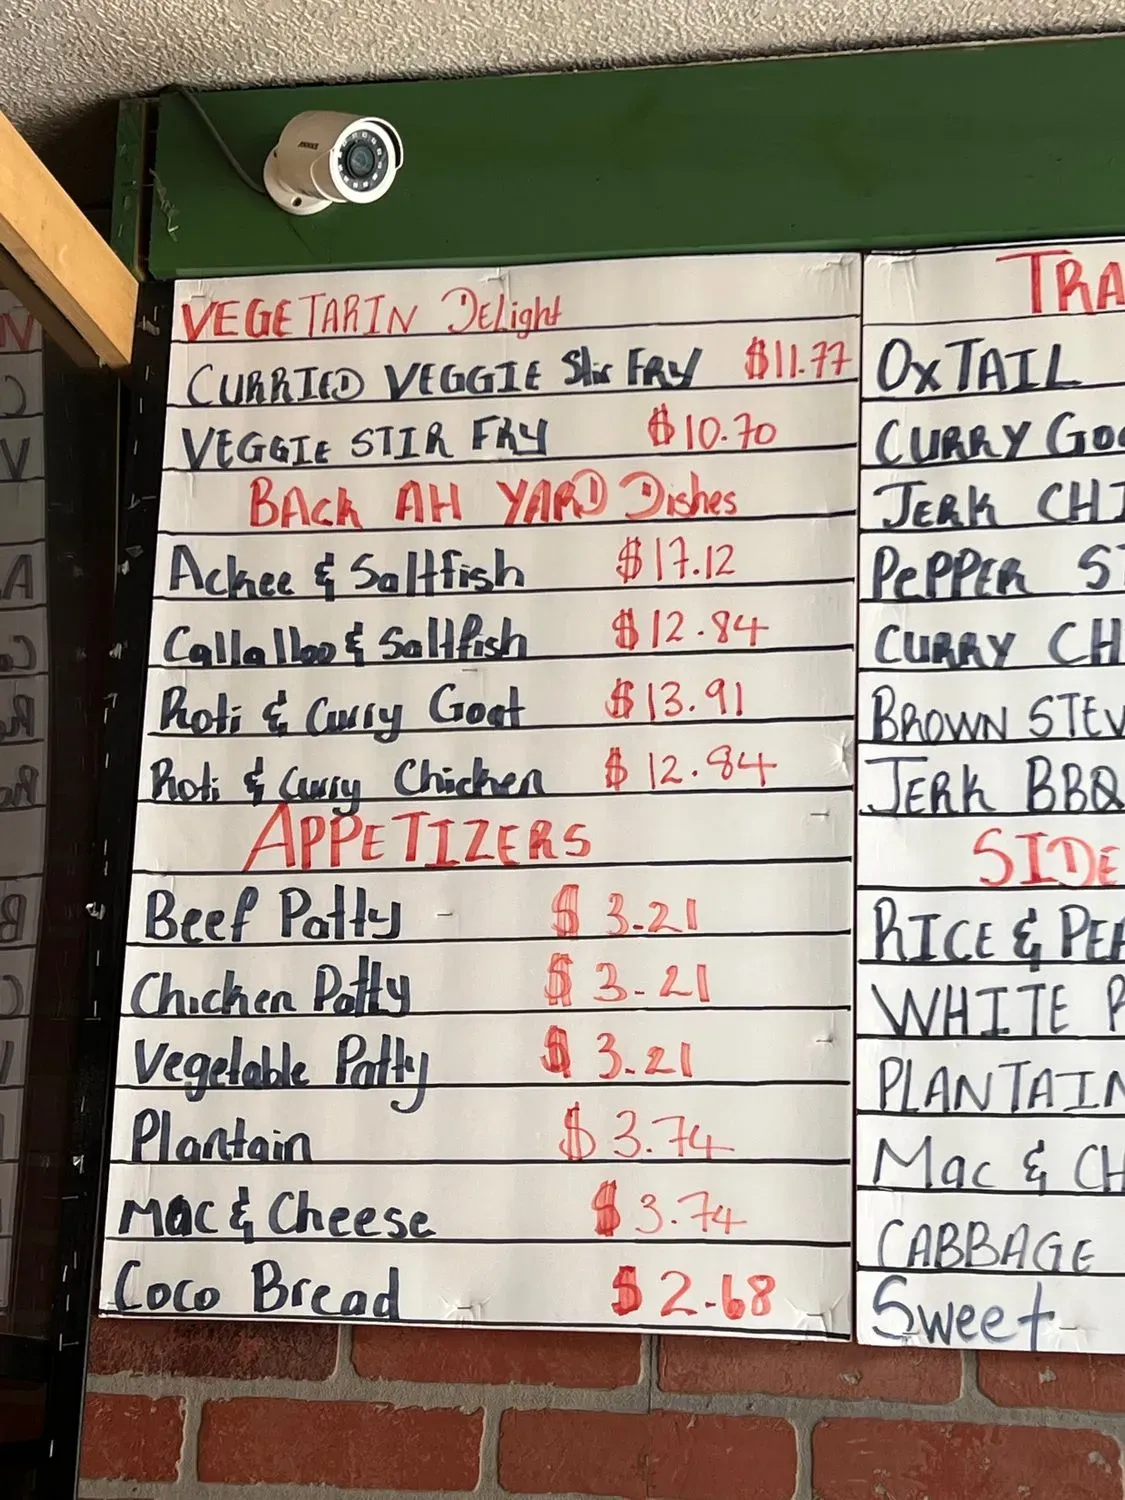 VEGETARIN DELight
CURRIED VEGGIE Stir FRY $11.77
VEGGIE STIR FRY $10.70
BACK AH YARD Dishes
Ackee & Saltfish $17.12
Callalloo & Saltfish $12.84
Roti & Curry Goat $13.91
Roti & Curry Chicken $12.84
APPETIZERS
Beef Patty $3.21
Chicken Patty $3.21
Vegetable Patty $3.21
Plantain $3.74
Mac & Cheese $3.74
Coco Bread $2.68
TRA
OXTAIL
CURRY GO
JERK CHI
PEPPER ST
CURRY CH
BROWN STEW
JERK BBQ
SIDE
RICE & PEA
WHITE R
PLANTAIN
Mac & CH
CABBAGE
Sweet